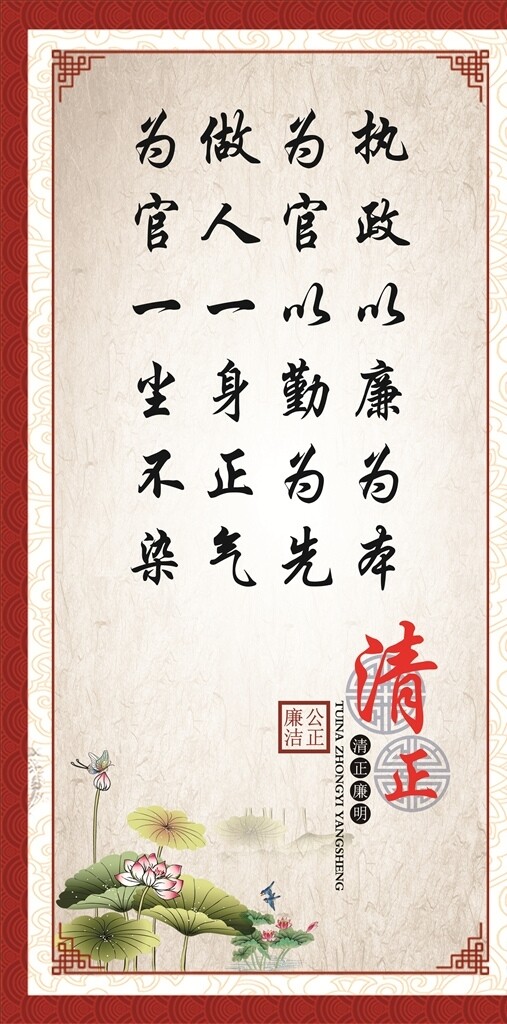 执政以廉为本
为官以勤为先
做人一身正气
为官一尘不染
清正
清正廉明
TUINA ZHONGYI YANGSHENG
公正
廉洁